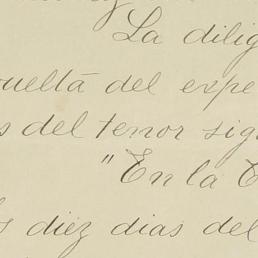 La dilig
vuelta del expe
s del tenor sig
"En la C
s diez dias del